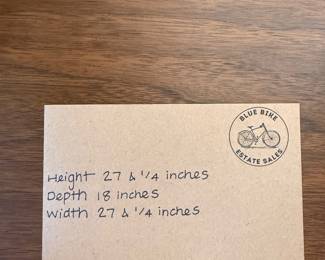 BLUE BIKE
ESTATE SALES
Height 27 & 1/4 inches
Depth 18 inches
Width 27 & 1/4 inches